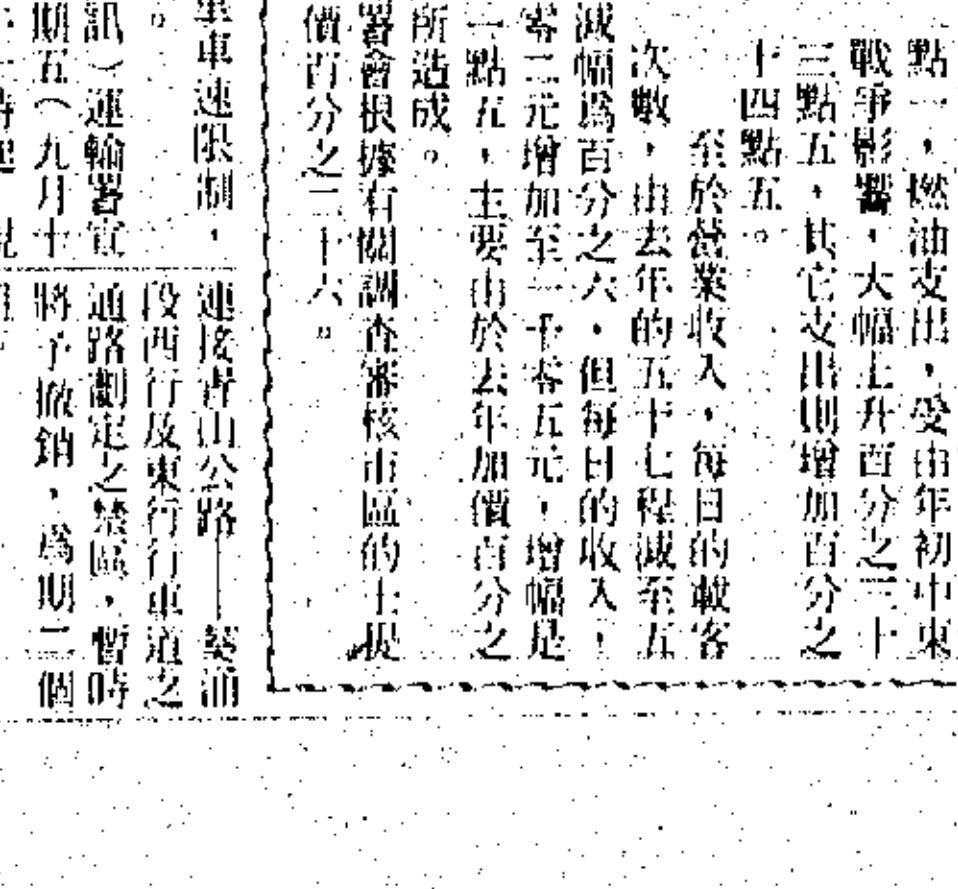 點一，燃油支出，受由年初中東
戰爭影響，大幅上升百分之三十
三點五，其它支出則增加百分之
十四點五。
至於營業收入，每日的載客
次數，由去年的五十七程減至五
減幅爲百分之六，但每日的收入，
零二元增加至一千零五元，增幅是
一點五，主要由於去年加價百分之
所造成。
署會根據有關調查審核市區的士提
價百分之二十六。
車速限制，
。
訊）運輸署宣
期五（九月十
連接青山公路——葵涌
段西行及東行行車道之
通路劃定之禁區，暫時
將予撤銷，爲期二個